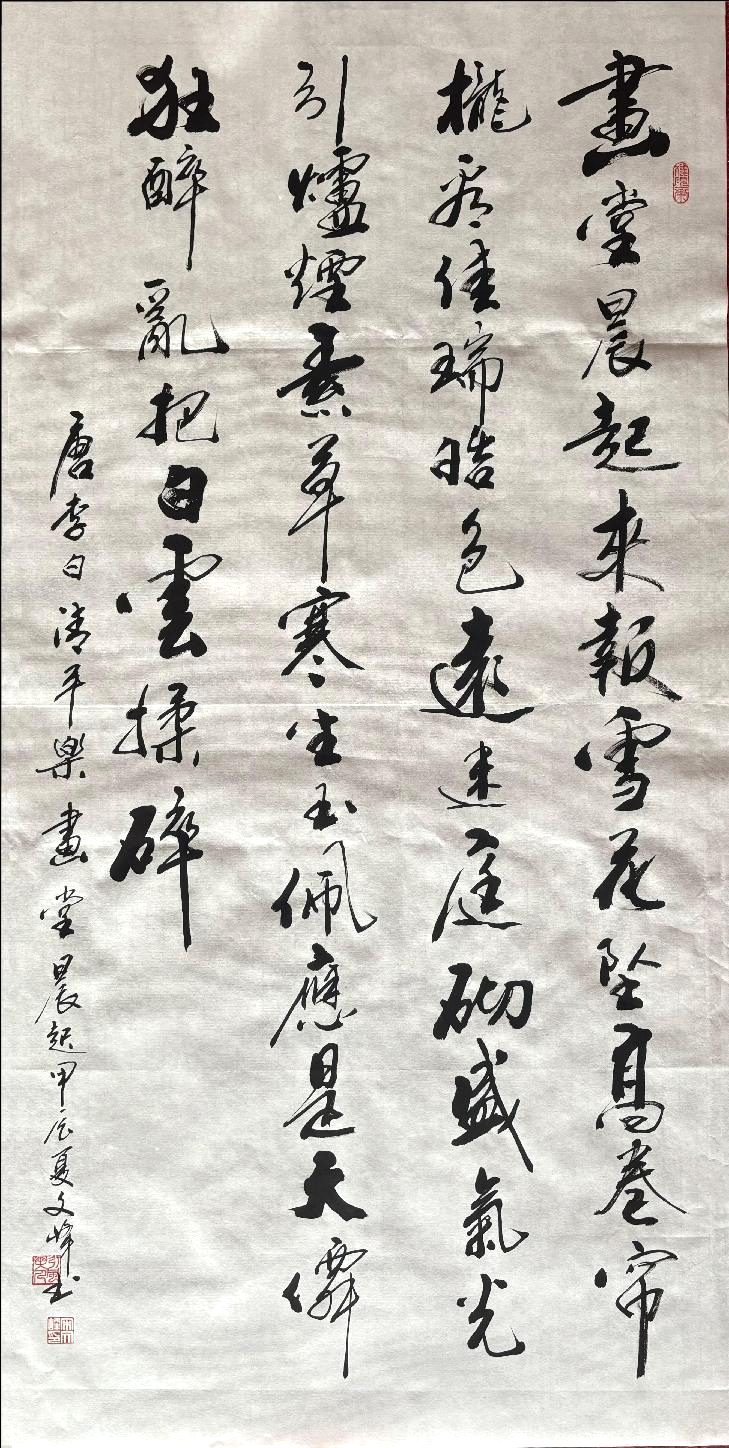 畫堂晨起來報雪花墜高卷帘
櫳看佳瑞皓色遠迷庭砌盛氣光
引爐煙素草寒生玉佩應是天僊
狂醉亂把白雲揉碎
唐李白清平樂畫堂晨起甲辰夏文峰书